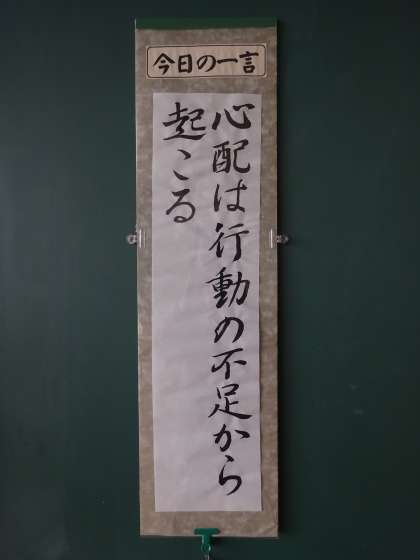 今日の一言
心配は行動の不足から
起こる